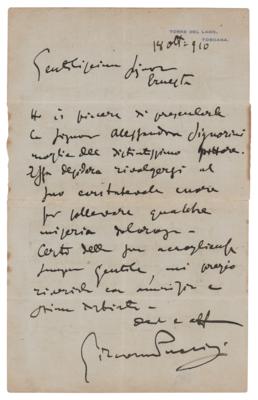 TORRE DEL LAGO,
TOSCANA.
18 ott. 910
Gentilissima Signora
Ernesta
Ho il piacere di presentarle
la Signora Alessandra Signorini
moglie del distintissimo pittore.
Essa desidera rivolgersi al
suo caritatevole cuore
per sollevare qualche
miseria dolorosa.
Certo della sua accoglienza
sempre gentile, mi pregio
riverirla con amicizia e
stima distinta
Giacomo Puccini